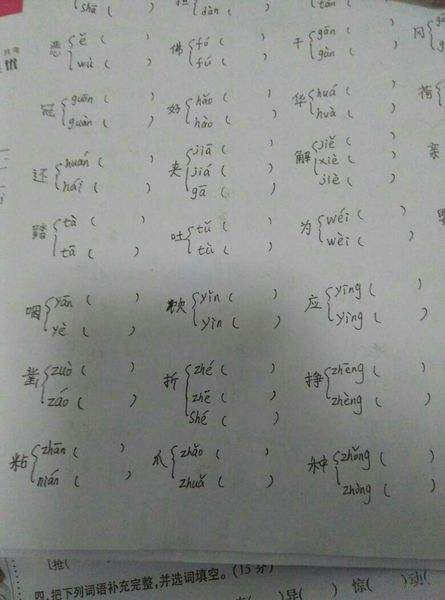 shā ( ) dàn ( ) tán ( )
恶 ě ( ) 佛 fó ( ) 干 gān ( ) 冈
wù ( ) fú ( ) gàn ( )
冠 guān ( ) 好 hǎo ( ) 华 huá ( )
guàn ( ) hào ( ) huà ( )
还 huán ( ) 夹 jiā ( ) 解 jiě ( ) 亲
hái ( ) jiá ( ) xiè ( )
gā ( ) jiè ( )
踏 tà ( ) 吐 tǔ ( ) 为 wéi ( )
tā ( ) tù ( ) wèi ( )
咽 yān ( ) 饮 yǐn ( ) 应 yīng (
yè ( ) yìn ( ) yìng (
凿 zuò ( ) 折 zhé ( ) 挣 zhēng (
záo ( ) zhē ( ) zhèng (
shé (
粘 zhān ( ) 爪 zhǎo ( ) 种 zhǒng ( )
nián ( ) zhuǎ ( ) zhòng ( )
抢(
四、把下列词语补充完整,并选词填空。(15分)
)异( 惊( )动(